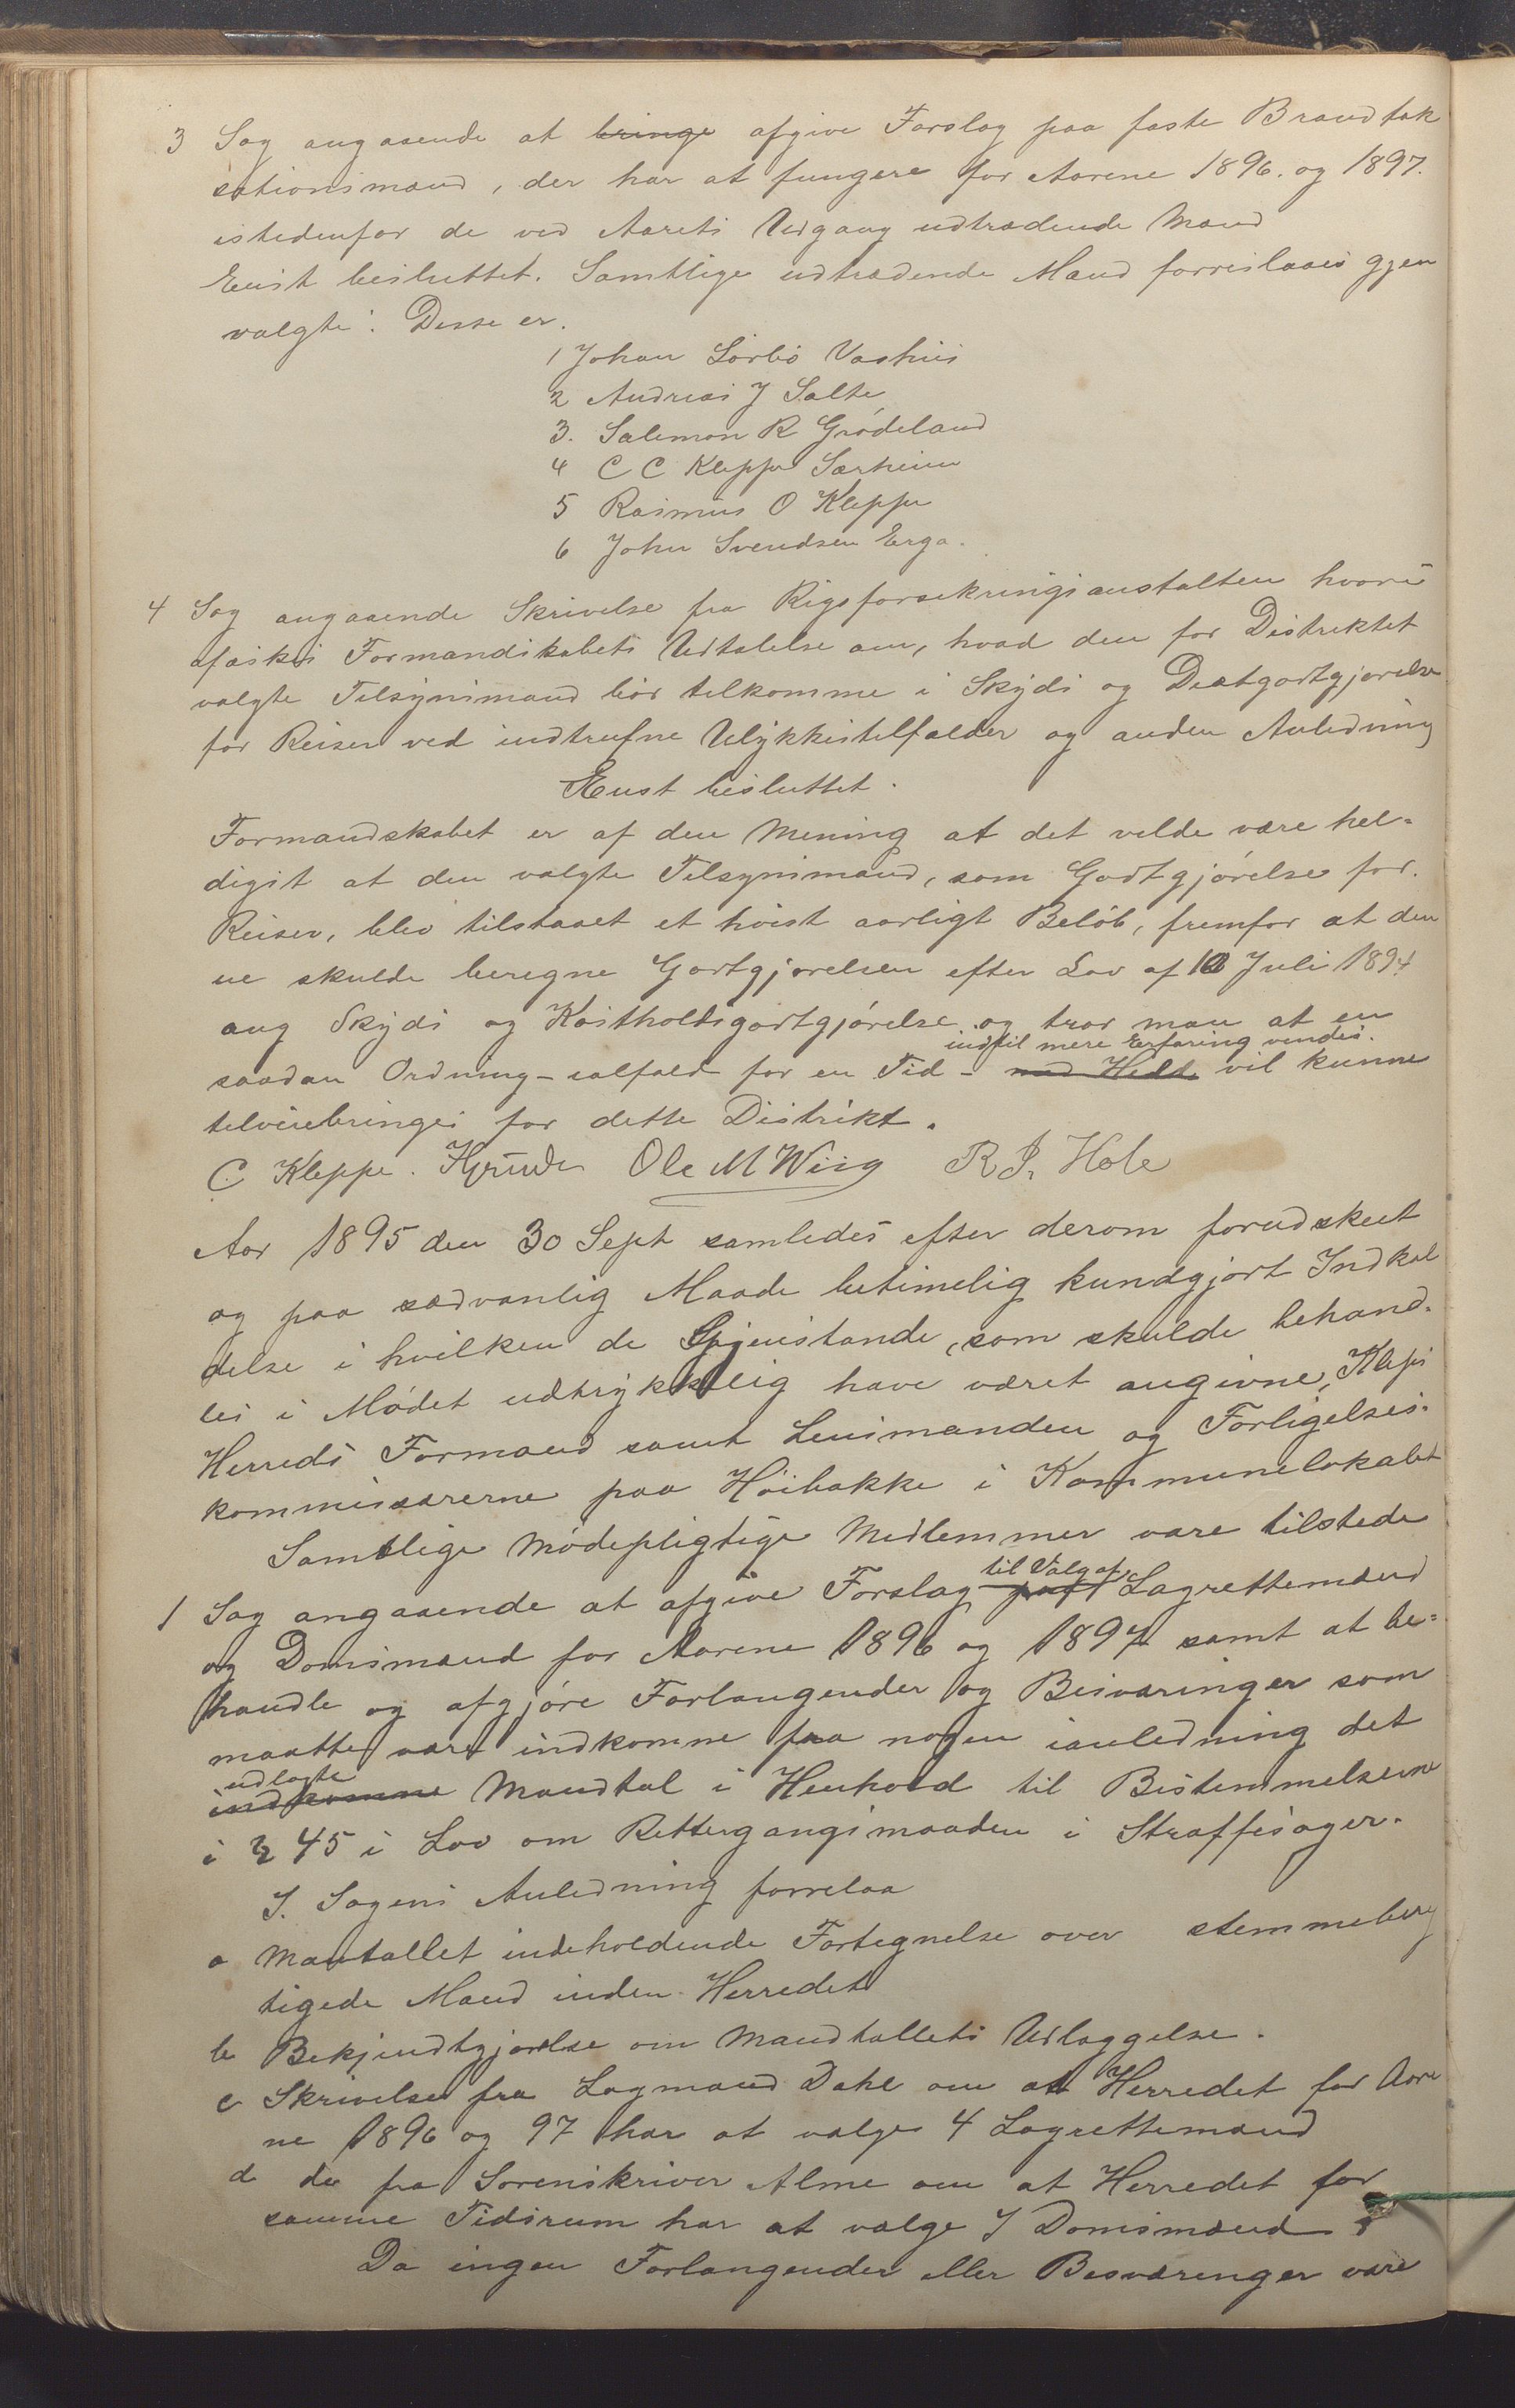 3 Sag angaaende at bringe afgive Forslag paa faste Brandtak
sationsmænd, der har at fungere for Aarene 1896. og 1897.
istedenfor de ved Aarets Udgang udtrædende Mænd
Enst besluttet. Samtlige udtrædende Mænd forreslaaes gjen
valgte: Disse er.
1 Johan Sørbø Vashus
2 Andreas J Salte
3. Salemon R Grødeland
4 C C Kleppe Særheim
5 Rasmus O Kleppe
6 John Svendsen Erga.
4 Sag angaaende Skrivelse fra Rigsforsekringsanstalten hvori
afæskes Formandskabets Udtalelse om, hvad den for Distriktet
valgte Tilsynsmand bør tilkomme i Skyds og Diætgodtgjørelse
for Reiser ved indtrufne Ulykkestilfælder og anden Anledning
Enst besluttet.
Formandskabet er af den Mening at det vilde være hel-
digst at den valgte Tilsynsmand, som Godtgjørelse for
Reiser, blev tilstaaet et høist aarligt Beløb, fremfor at den
ne skulde beregne Godtgjørelsen efter Lov af 10 Juli 1894
ang Skyds og Kostholdsgodtgjørelse og tror man at en
indtil mere Erfaring vindes.
saadan Ordning - ialfald for en Tid - med Held vil kunne
tilveiebringes for dette Distrikt.
C Kleppe. Ole M Wiig R. J. Hole
Aar 1895 den 30 Sept samledes efter derom forudskeet
og paa sædvanlig Maade betimelig kundgjort Indkal
delse i hvilken de Gjenstande, som skulde behand-
les i Mødet udtrykkelig have været angivne, Kleps
Herreds Formænd samt Lensmanden og Forligelses-
kommissærerne paa Høibakke i Kommunelokalet
Samtlige Mødepligtige Medlemmer vare tilstede
til Valg af
1 Sag angaaende at afgive Forslag paa Lagrettemænd
og Domsmænd for Aarene 1896 og 1897 samt at be-
handle og afgjøre Forlangender og Besværinger som
maatte være indkomne fra nogen ianledning det
udlagte
indkomne Mandtal i Henhold til Bestemmelserne
i § 45 i Lov om Rettergangsmaaden i Straffesager.
I. Sagens Anledning forrelaa
a Mantallet indeholdende Fortegnelse over stemmeberg
tigede Mænd inden Herredet
b Bekjendtgjørelse om Mandtallets Udlæggelse.
c Skrivelse fra Lagmand Dahl om at Herredet for Aare
ne 1896 og 97 har at vælge 4 Lagrettemænd
d do fra Sorenskriver Alme om at Herredet for
samme Tidsrum har at vælge 7 Domsmænd
Da ingen Forlangender eller Besværinger vare